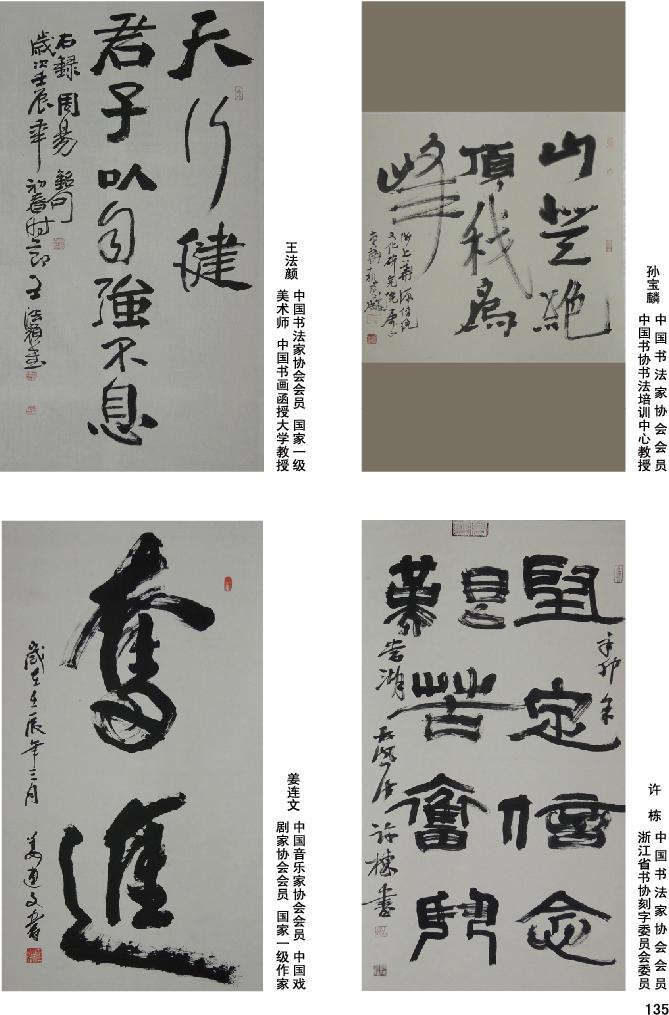 天行健
君子以自強不息
右錄周易語句
歲次壬辰年初春時節王法顏書
王法颜
中国书法家协会会员 国家一级
美术师 中国书画函授大学教授
山登絶
頂我為
峰
孙宝麟
中国书法家协会会员
中国书协书法培训中心教授
奮進
歲在壬辰年三月
姜连文
中国音乐家协会会员 中国戏
剧家协会会员 国家一级作家
堅定信念
艱苦奮鬥
許棟書
许栋
中国书法家协会会员
浙江省书协刻字委员会委员
135